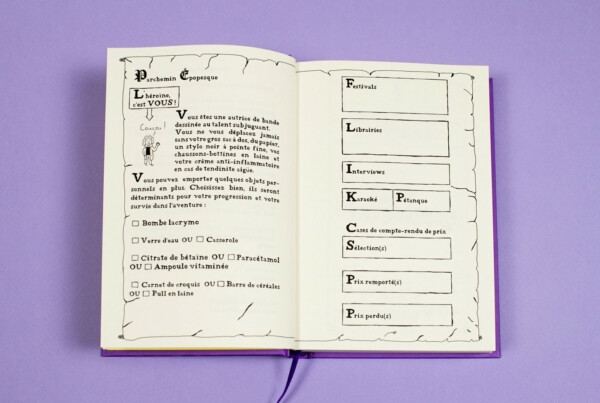 Parchemin Épopesque
L'héroïne,
c'est VOUS!
Coucou!
Vous êtes une autrice de bande
dessinée au talent subjuguant.
Vous ne vous déplacez jamais
sans votre gros sac à dos, du papier,
un stylo noir à pointe fine, vos
chaussons-bottines en laine et
votre crème anti-inflammatoire
en cas de tendinite aigüe.
Vous pouvez emporter quelques objets per-
sonnels en plus. Choisissez bien, ils seront
déterminants pour votre progression et votre
survie dans l'aventure :
☐ Bombe lacrymo
☐ Verre d'eau OU ☐ Casserole
☐ Citrate de bétaïne OU ☐ Paracétamol
OU ☐ Ampoule vitaminée
☐ Carnet de croquis OU ☐ Barre de céréales
OU ☐ Pull en laine
Festivals
Librairies
Interviews
Karaoké Pétanque
Cases de compte-rendu de prix
Sélection(s)
Prix remporté(s)
Prix perdu(s)